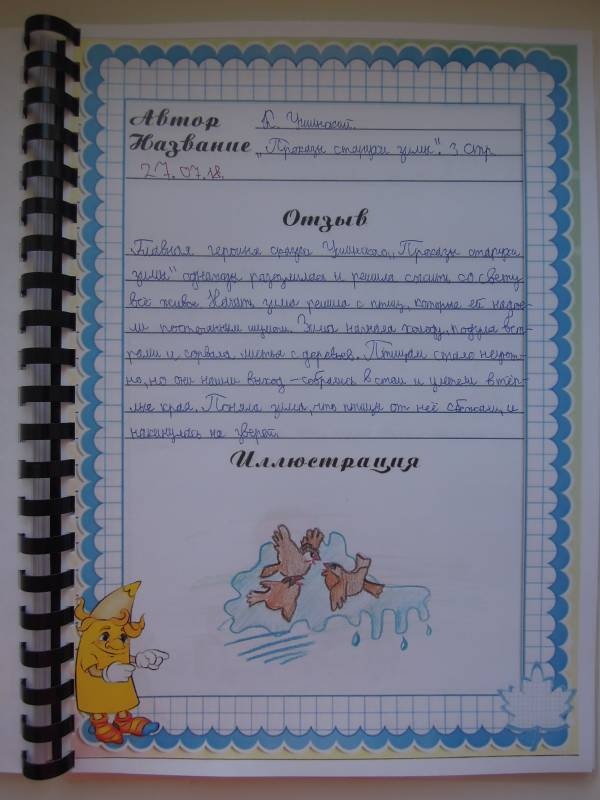 Автор К. Ушинский.
Название „Проказы старухи зимы". 3 стр
27.07.18.
Отзыв
Главная героиня сказки Ушинского „Проказы старухи
зимы" однажды разозлилась и решила сжить со свету
всё живое. Начать зима решила с птиц, которые ей надое-
ли постоянным шумом. Зима нагнала холоду, подула вет-
рами и сорвала листья с деревьев. Птицам стало неуют-
но, но они нашли выход – собрались в стаи и улетели в тёп-
лые края. Поняла зима, что птицы от неё сбежали, и
накинулась на зверей.
Иллюстрация